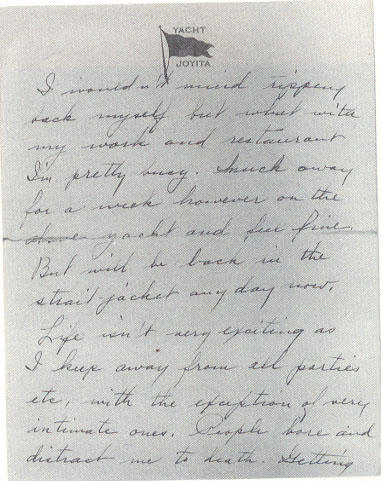 YACHT
JOYITA
I wouldn't mind tripping
back myself but what with
my work and restaurant
I'm pretty busy. Snuck away
for a week however on the
above yacht and feel fine
But will be back in the
strait-jacket any day now.
Life isn't very exciting as
I keep away from all parties
etc, with the exception of very
intimate ones. People bore and
distract me to death. Getting